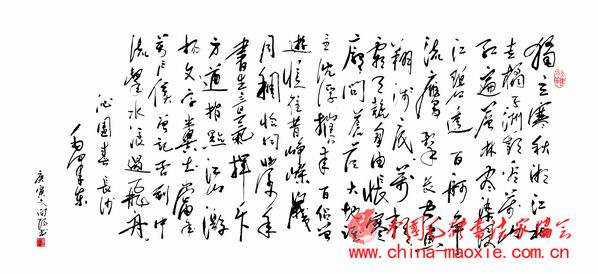 独立寒秋湘江北
去橘子洲头看万山
红遍层林尽染漫
江碧透百舸争
流鹰击长空鱼
翔浅底万类
霜天竞自由怅寥
廓问苍茫大地谁
主沉浮携来百侣曾
游忆往昔峥嵘岁
月稠恰同学少年
书生意气挥斥
方遒指点江山激
扬文字粪土当年
万户侯曾记否到中
流击水浪遏飞舟
沁园春 长沙
毛泽东
庚寅
中国毛体书法家协会
www.china-maoxie.com.cn